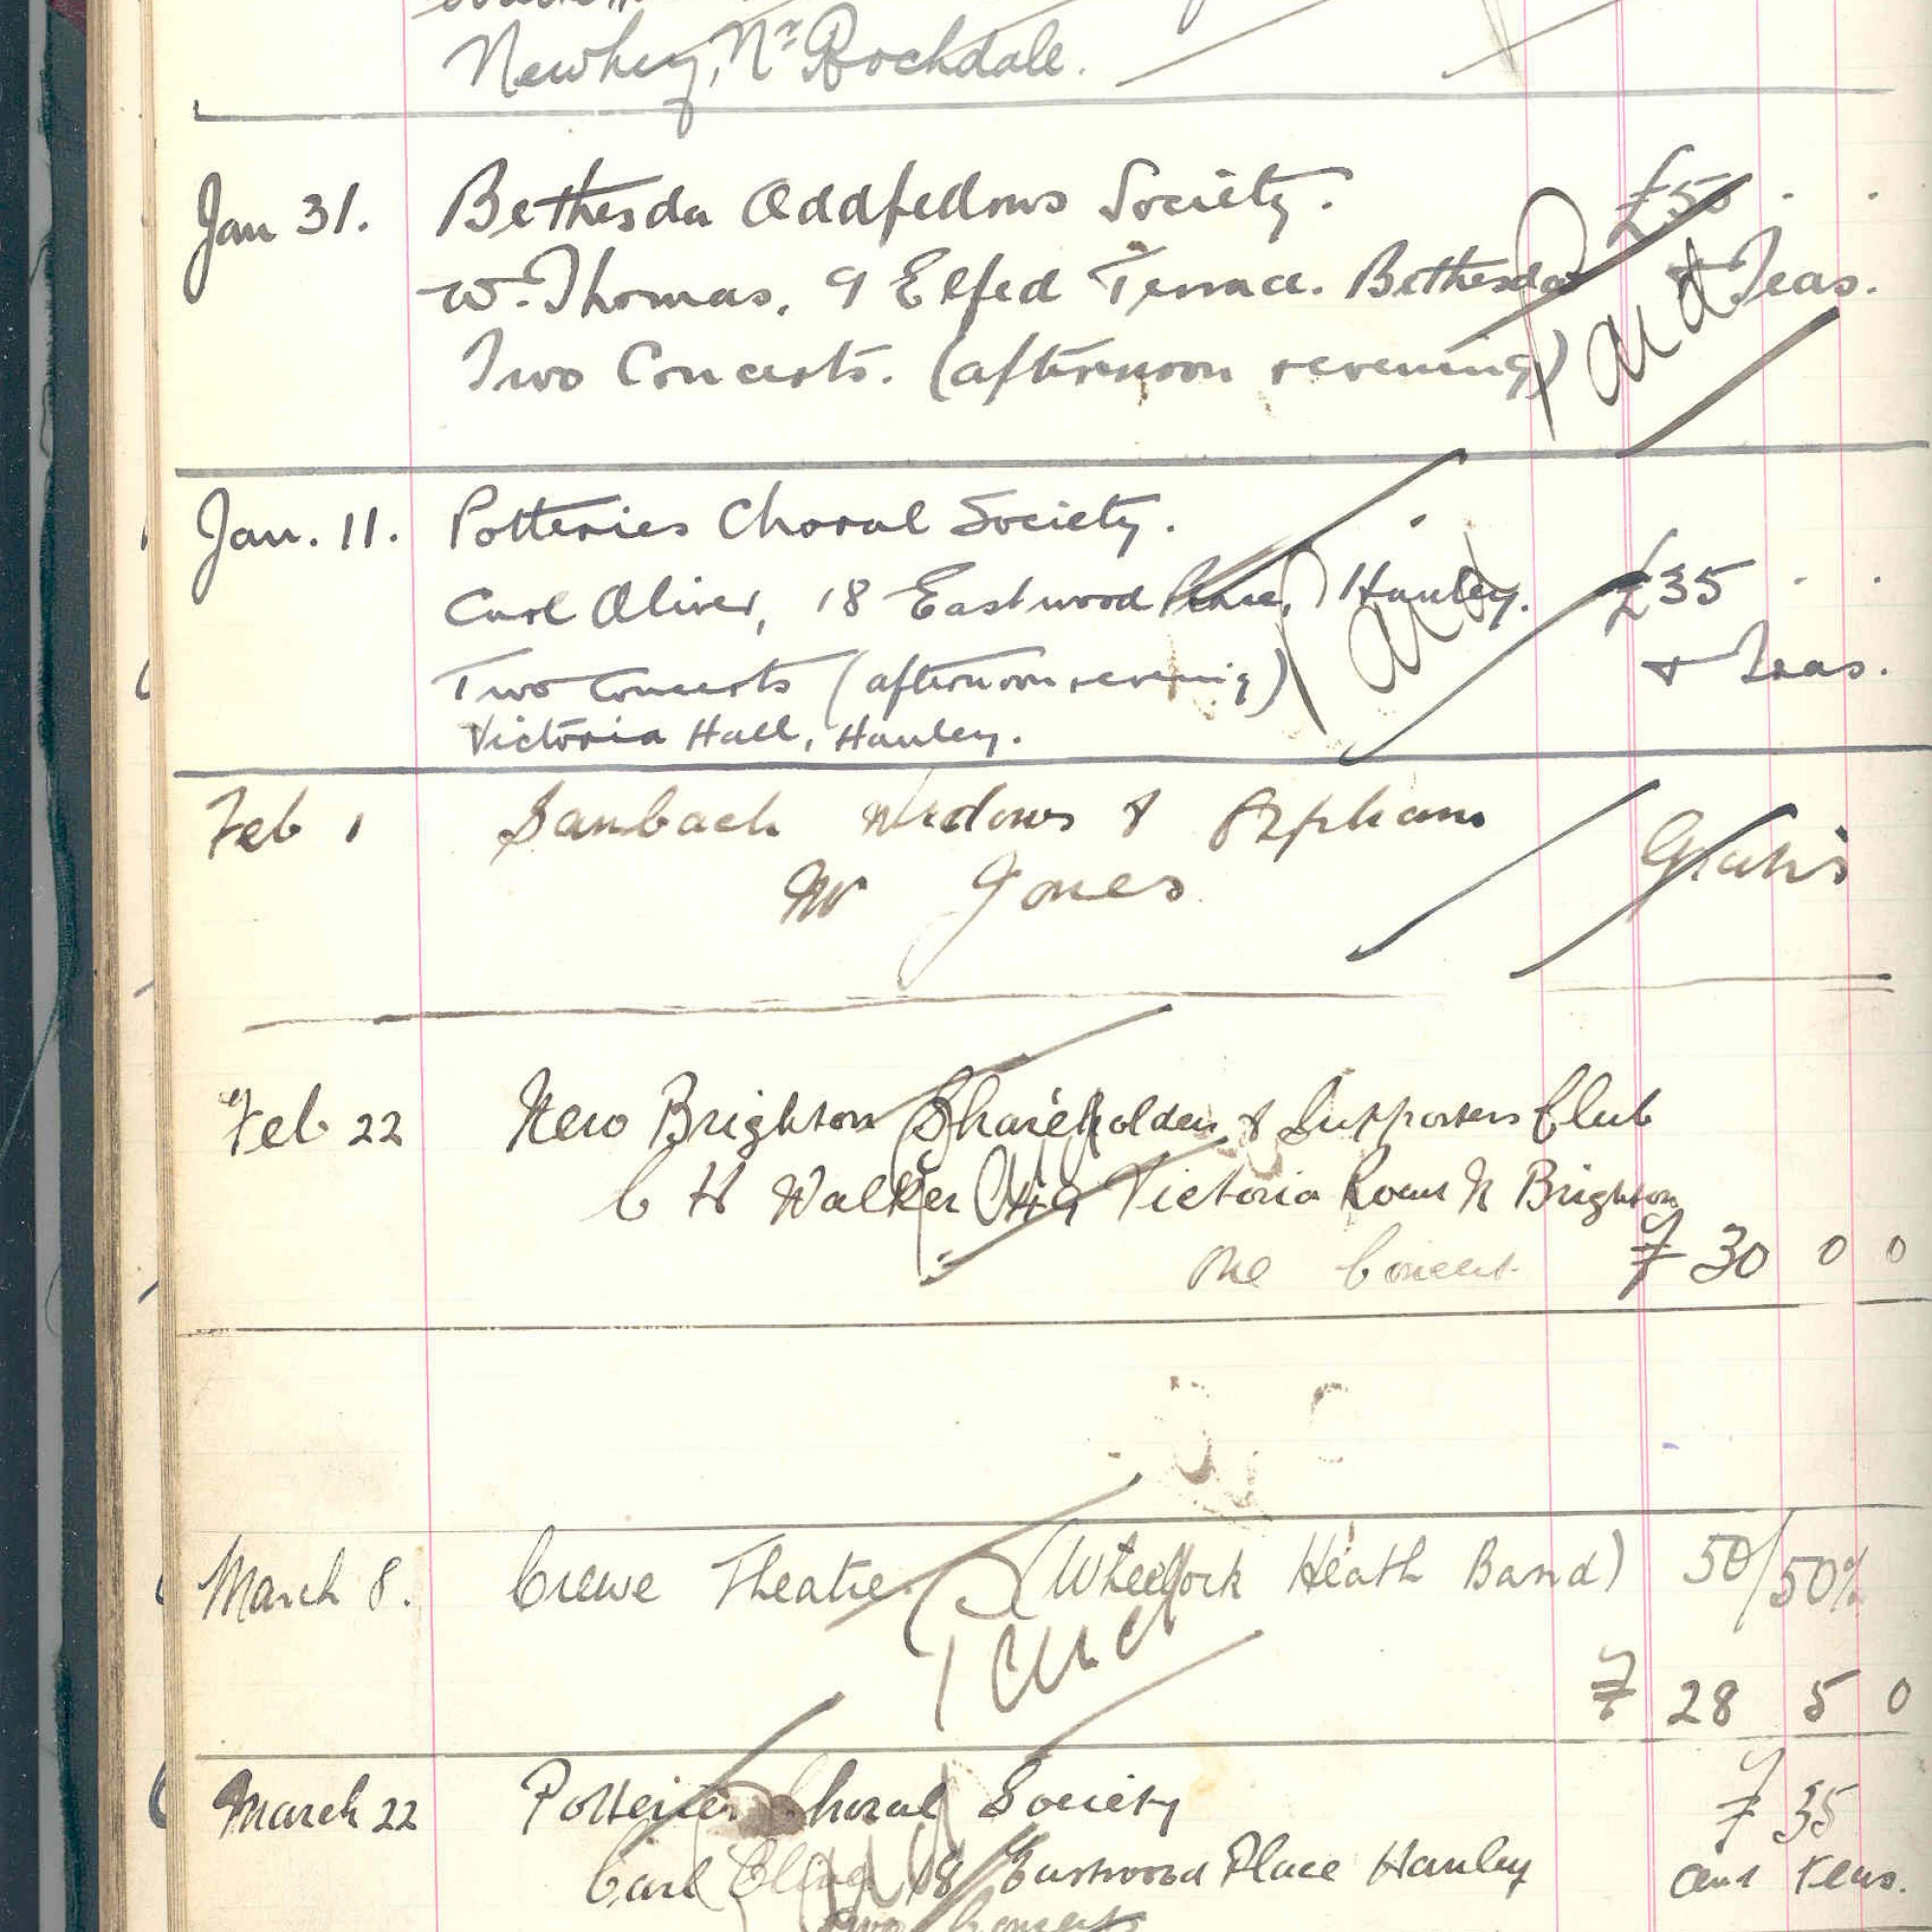 Newhey, Nr Rochdale.
Jan 31. Bethesda Oddfellows Society. £50 . .
W. Thomas, 9 Elfed Terrace. Bethesda & Teas.
Two Concerts. (afternoon & evening) Paid
Jan. 11. Potteries Choral Society.
Carl Oliver, 18 Eastwood Place, Hanley. £35 . .
Paid
Two Concerts (afternoon & evening) & Teas.
Victoria Hall, Hanley.
Feb 1 Sanbach Widows & Orphans Gratis
Mr Jones
Feb 22 New Brighton Shareholders & Supporters Club
C H Walker Victoria Road N Brighton
Paid
One Concert £ 30 0 0
March 8. Crewe Theatre. (Wheelock Heath Band) 50/50%
Paid
£ 28 5 0
March 22 Potteries Choral Society £ 35
Carl Oliver 18 Eastwood Place Hanley and Teas.
Paid
Two Concerts